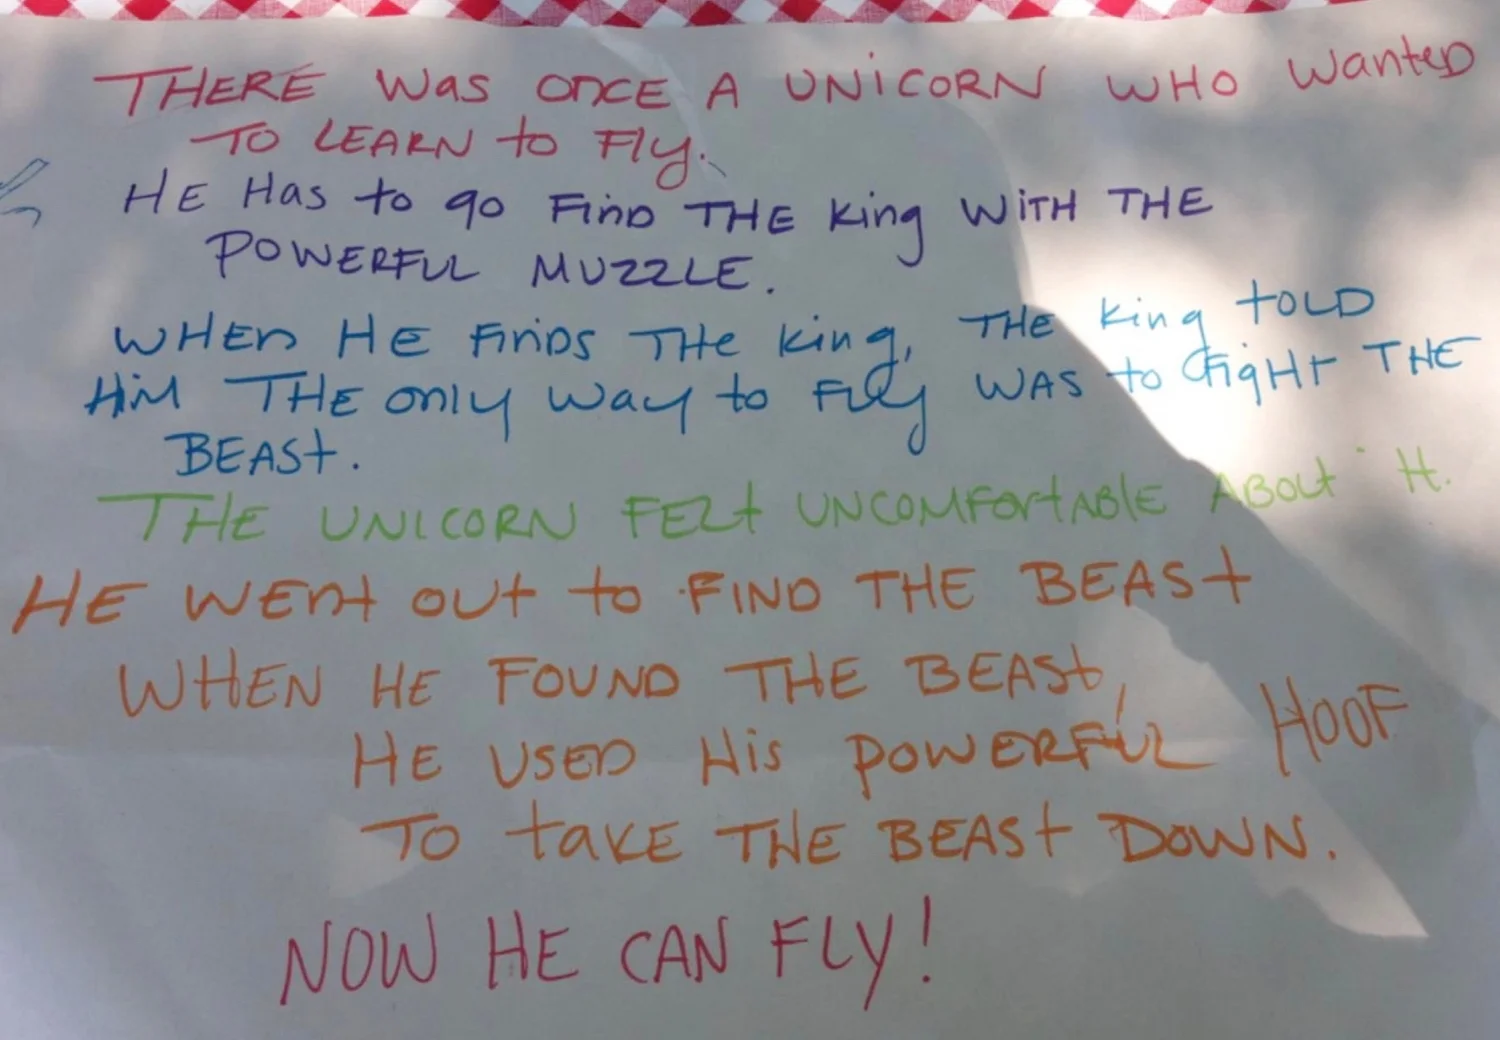 THERE Was ONCE A UNiCORN WHO WanteD
TO LEARN to Fly.
HE Has to go FinD THE King WiTH THE
POWERFUL MUZZLE.
WHEn HE FinDS THe King, THE King tOLD
HiM THE only way to FLy WAS to FigHt THE
BEASt.
THE UNICORN FELt UNCOMFOrtABLE ABOUt it.
HE WEnt OUt to FIND THE BEASt
WHEN HE FOUND THE BEASt,
HE USED His POWERFUL HOOF
TO taKE THE BEASt DOWN.
NOW HE CAN FLY!